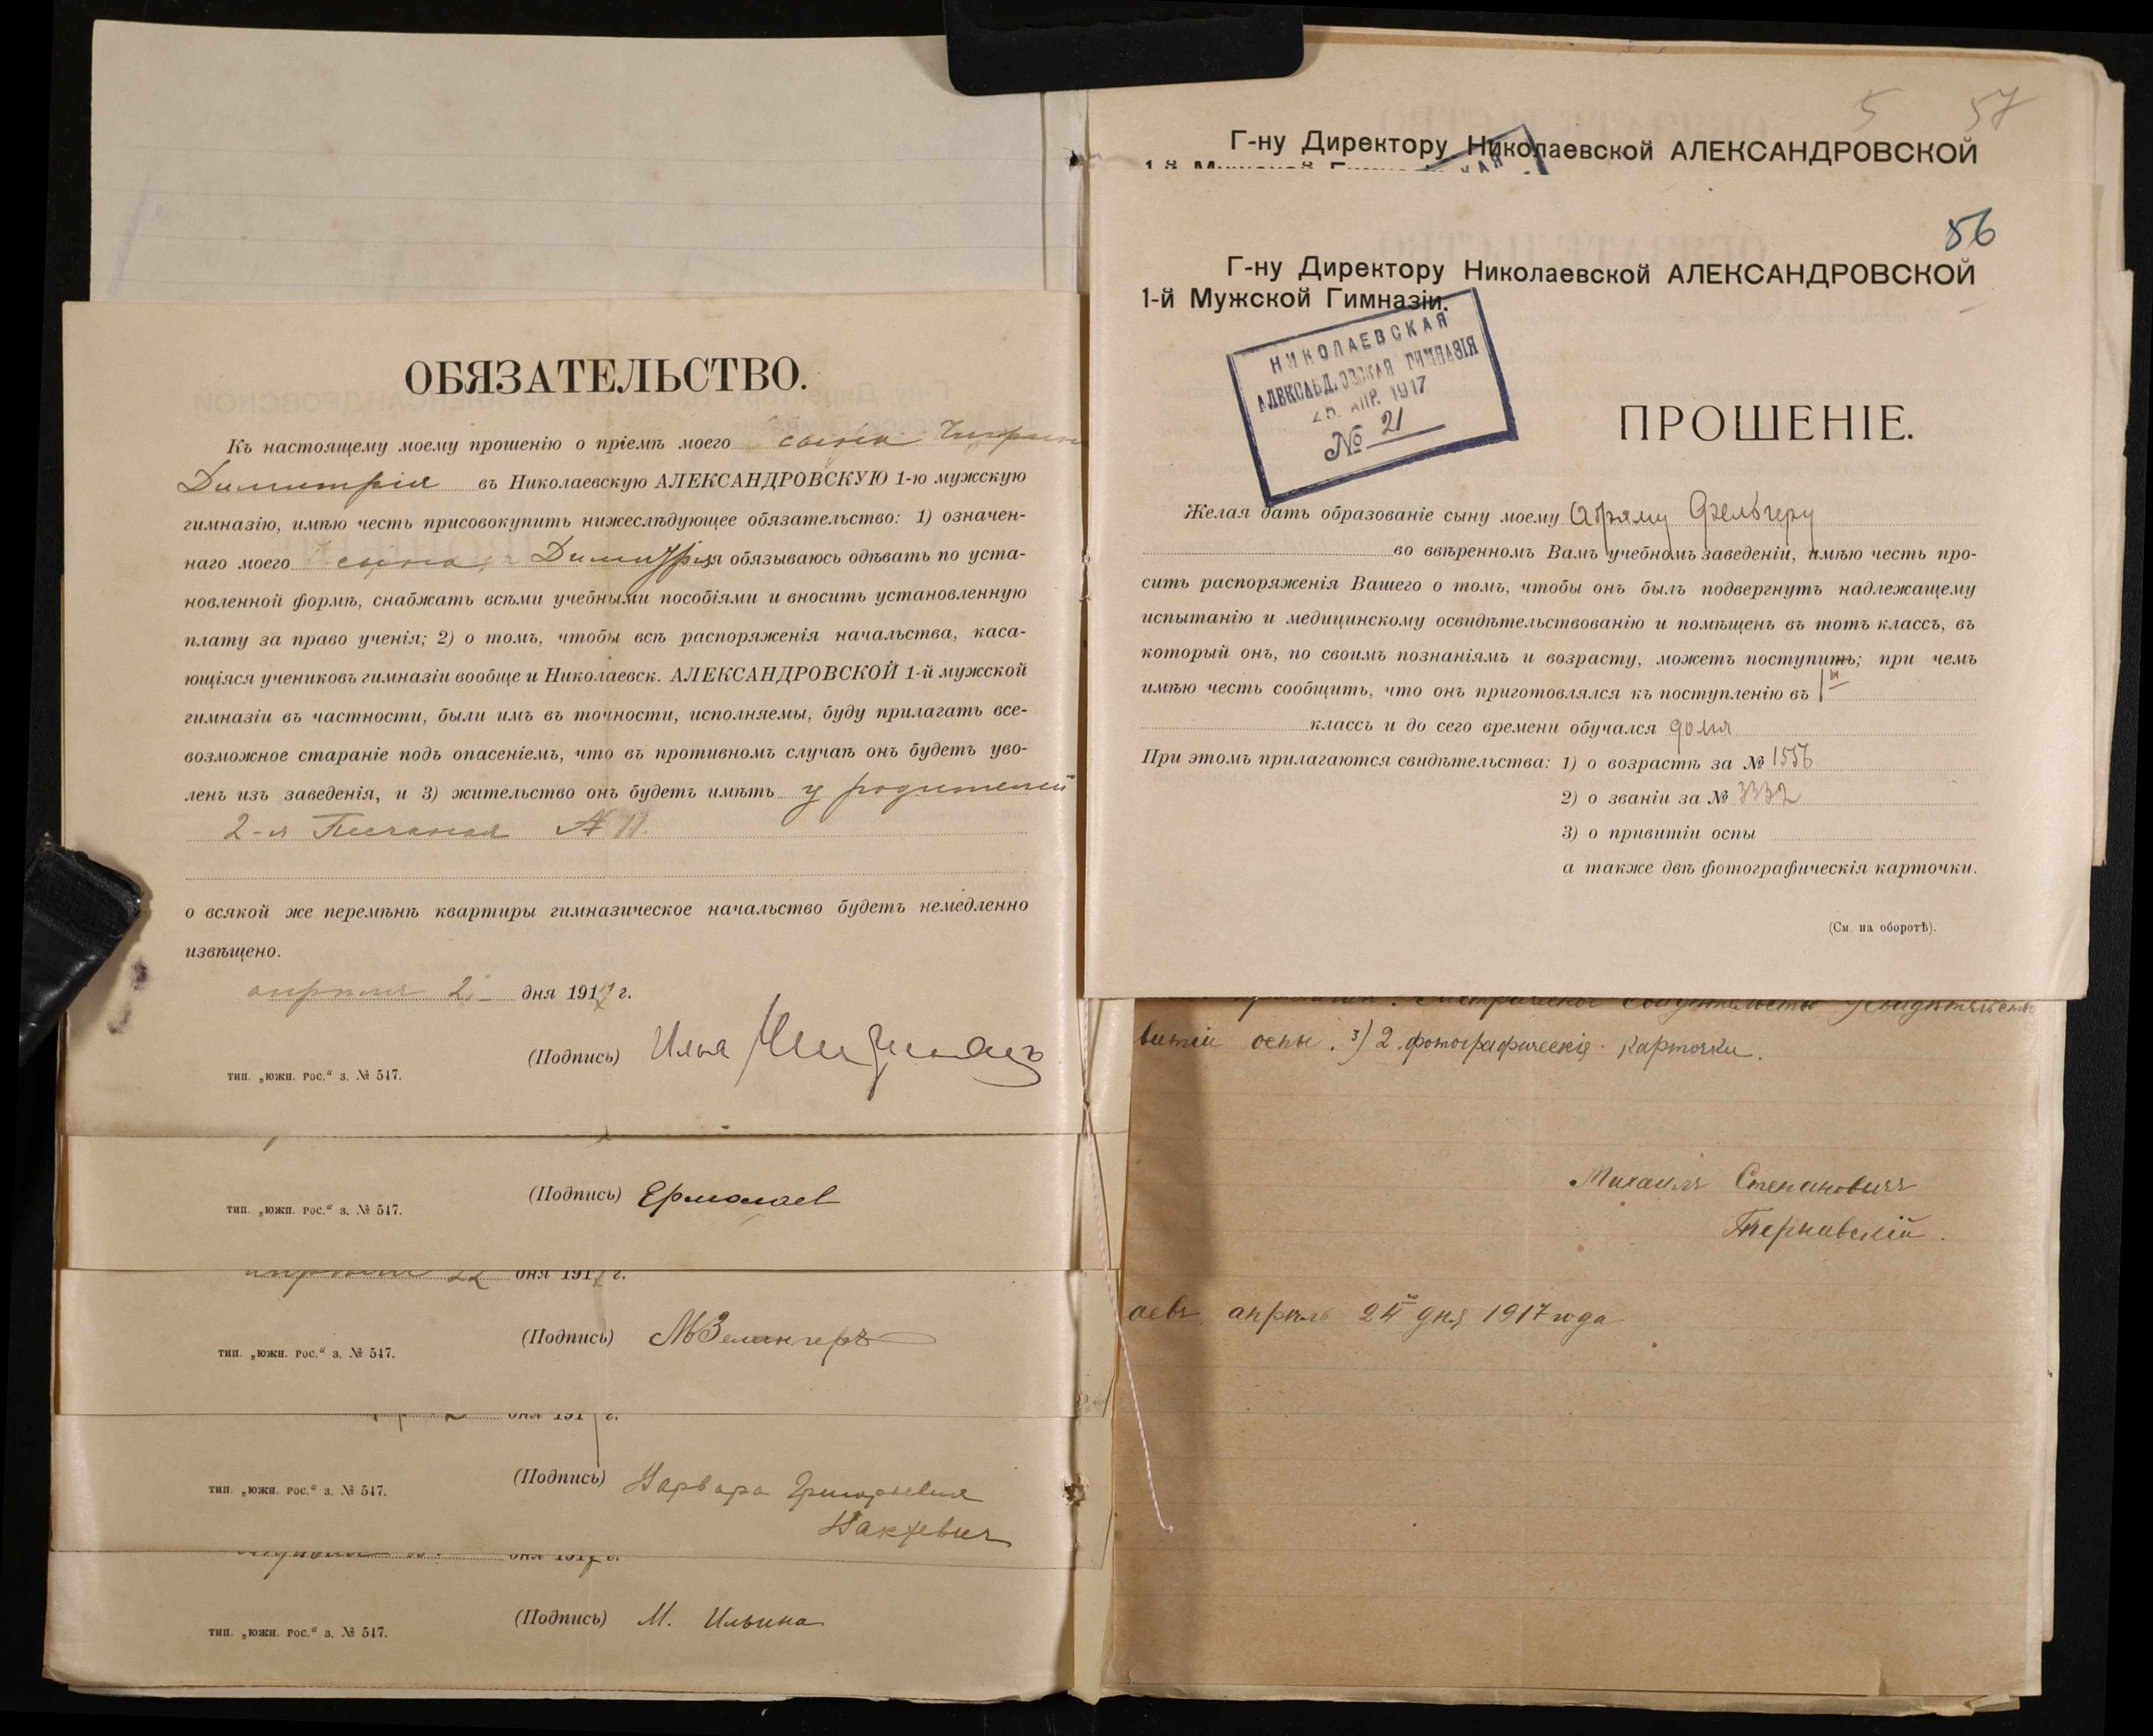 ОБЯЗАТЕЛЬСТВО.
Къ настоящему моему прошенію о пріемѣ моего сына
Димитрія въ Николаевскую АЛЕКСАНДРОВСКУЮ 1-ю мужскую
гимназію, имѣю честь присовокупить нижеслѣдующее обязательство: 1) означен-
наго моего сына Димитрія обязываюсь одѣвать по уста-
новленной формѣ, снабжать всѣми учебными пособіями и вносить установленную
плату за право ученія; 2) о томъ, чтобы всѣ распоряженія начальства, каса-
ющіяся учениковъ гимназіи вообще и Николаевск. АЛЕКСАНДРОВСКОЙ 1-й мужской
гимназіи въ частности, были имъ въ точности, исполняемы, буду прилагать все-
возможное стараніе подъ опасеніемъ, что въ противномъ случаѣ онъ будетъ уво-
ленъ изъ заведенія, и 3) жительство онъ будетъ имѣть у родителей
2-я Песчаная №
о всякой же перемѣнѣ квартиры гимназическое начальство будетъ немедленно
извѣщено.
апрѣля 2 дня 1917 г.
(Подпись) Илья
тип. „южн. рос.“ з. № 547.
(Подпись) Ермолаев
тип. „южн. рос.“ з. № 547.
апрѣля 22 дня 1917 г.
(Подпись) М Зелингеръ
тип. „южн. рос.“ з. № 547.
дня 191 г.
(Подпись) Варвара Григорьевна
тип. „южн. рос.“ з. № 547.
дня 1917 г.
(Подпись) М. Ильина
тип. „южн. рос.“ з. № 547.
5 57
Г-ну Директору Николаевской АЛЕКСАНДРОВСКОЙ
1-й Мужской Гимназіи
56
Г-ну Директору Николаевской АЛЕКСАНДРОВСКОЙ
1-й Мужской Гимназіи.
НИКОЛАЕВСКАЯ
АЛЕКСАНДРОВСКАЯ ГИМНАЗІЯ
25 АПР. 1917
№ 21
ПРОШЕНІЕ.
Желая дать образованіе сыну моему
во ввѣренномъ Вамъ учебномъ заведеніи, имѣю честь про-
сить распоряженія Вашего о томъ, чтобы онъ былъ подвергнутъ надлежащему
испытанію и медицинскому освидѣтельствованію и помѣщенъ въ тотъ классъ, въ
который онъ, по своимъ познаніямъ и возрасту, можетъ поступить; при чемъ
имѣю честь сообщить, что онъ приготовлялся къ поступленію въ 1й
классъ и до сего времени обучался дома
При этомъ прилагаются свидѣтельства: 1) о возрастѣ за № 1556
2) о званіи за № 3332
3) о привитіи оспы
а также двѣ фотографическія карточки.
(См. на оборотѣ).
Метрическое свидѣтельство свидѣтельство
витіи оспы. 3) 2 фотографическія карточки.
Михаилъ Степановичъ
Тернавскій.
аевъ, апрѣль 24го дня 1917 года